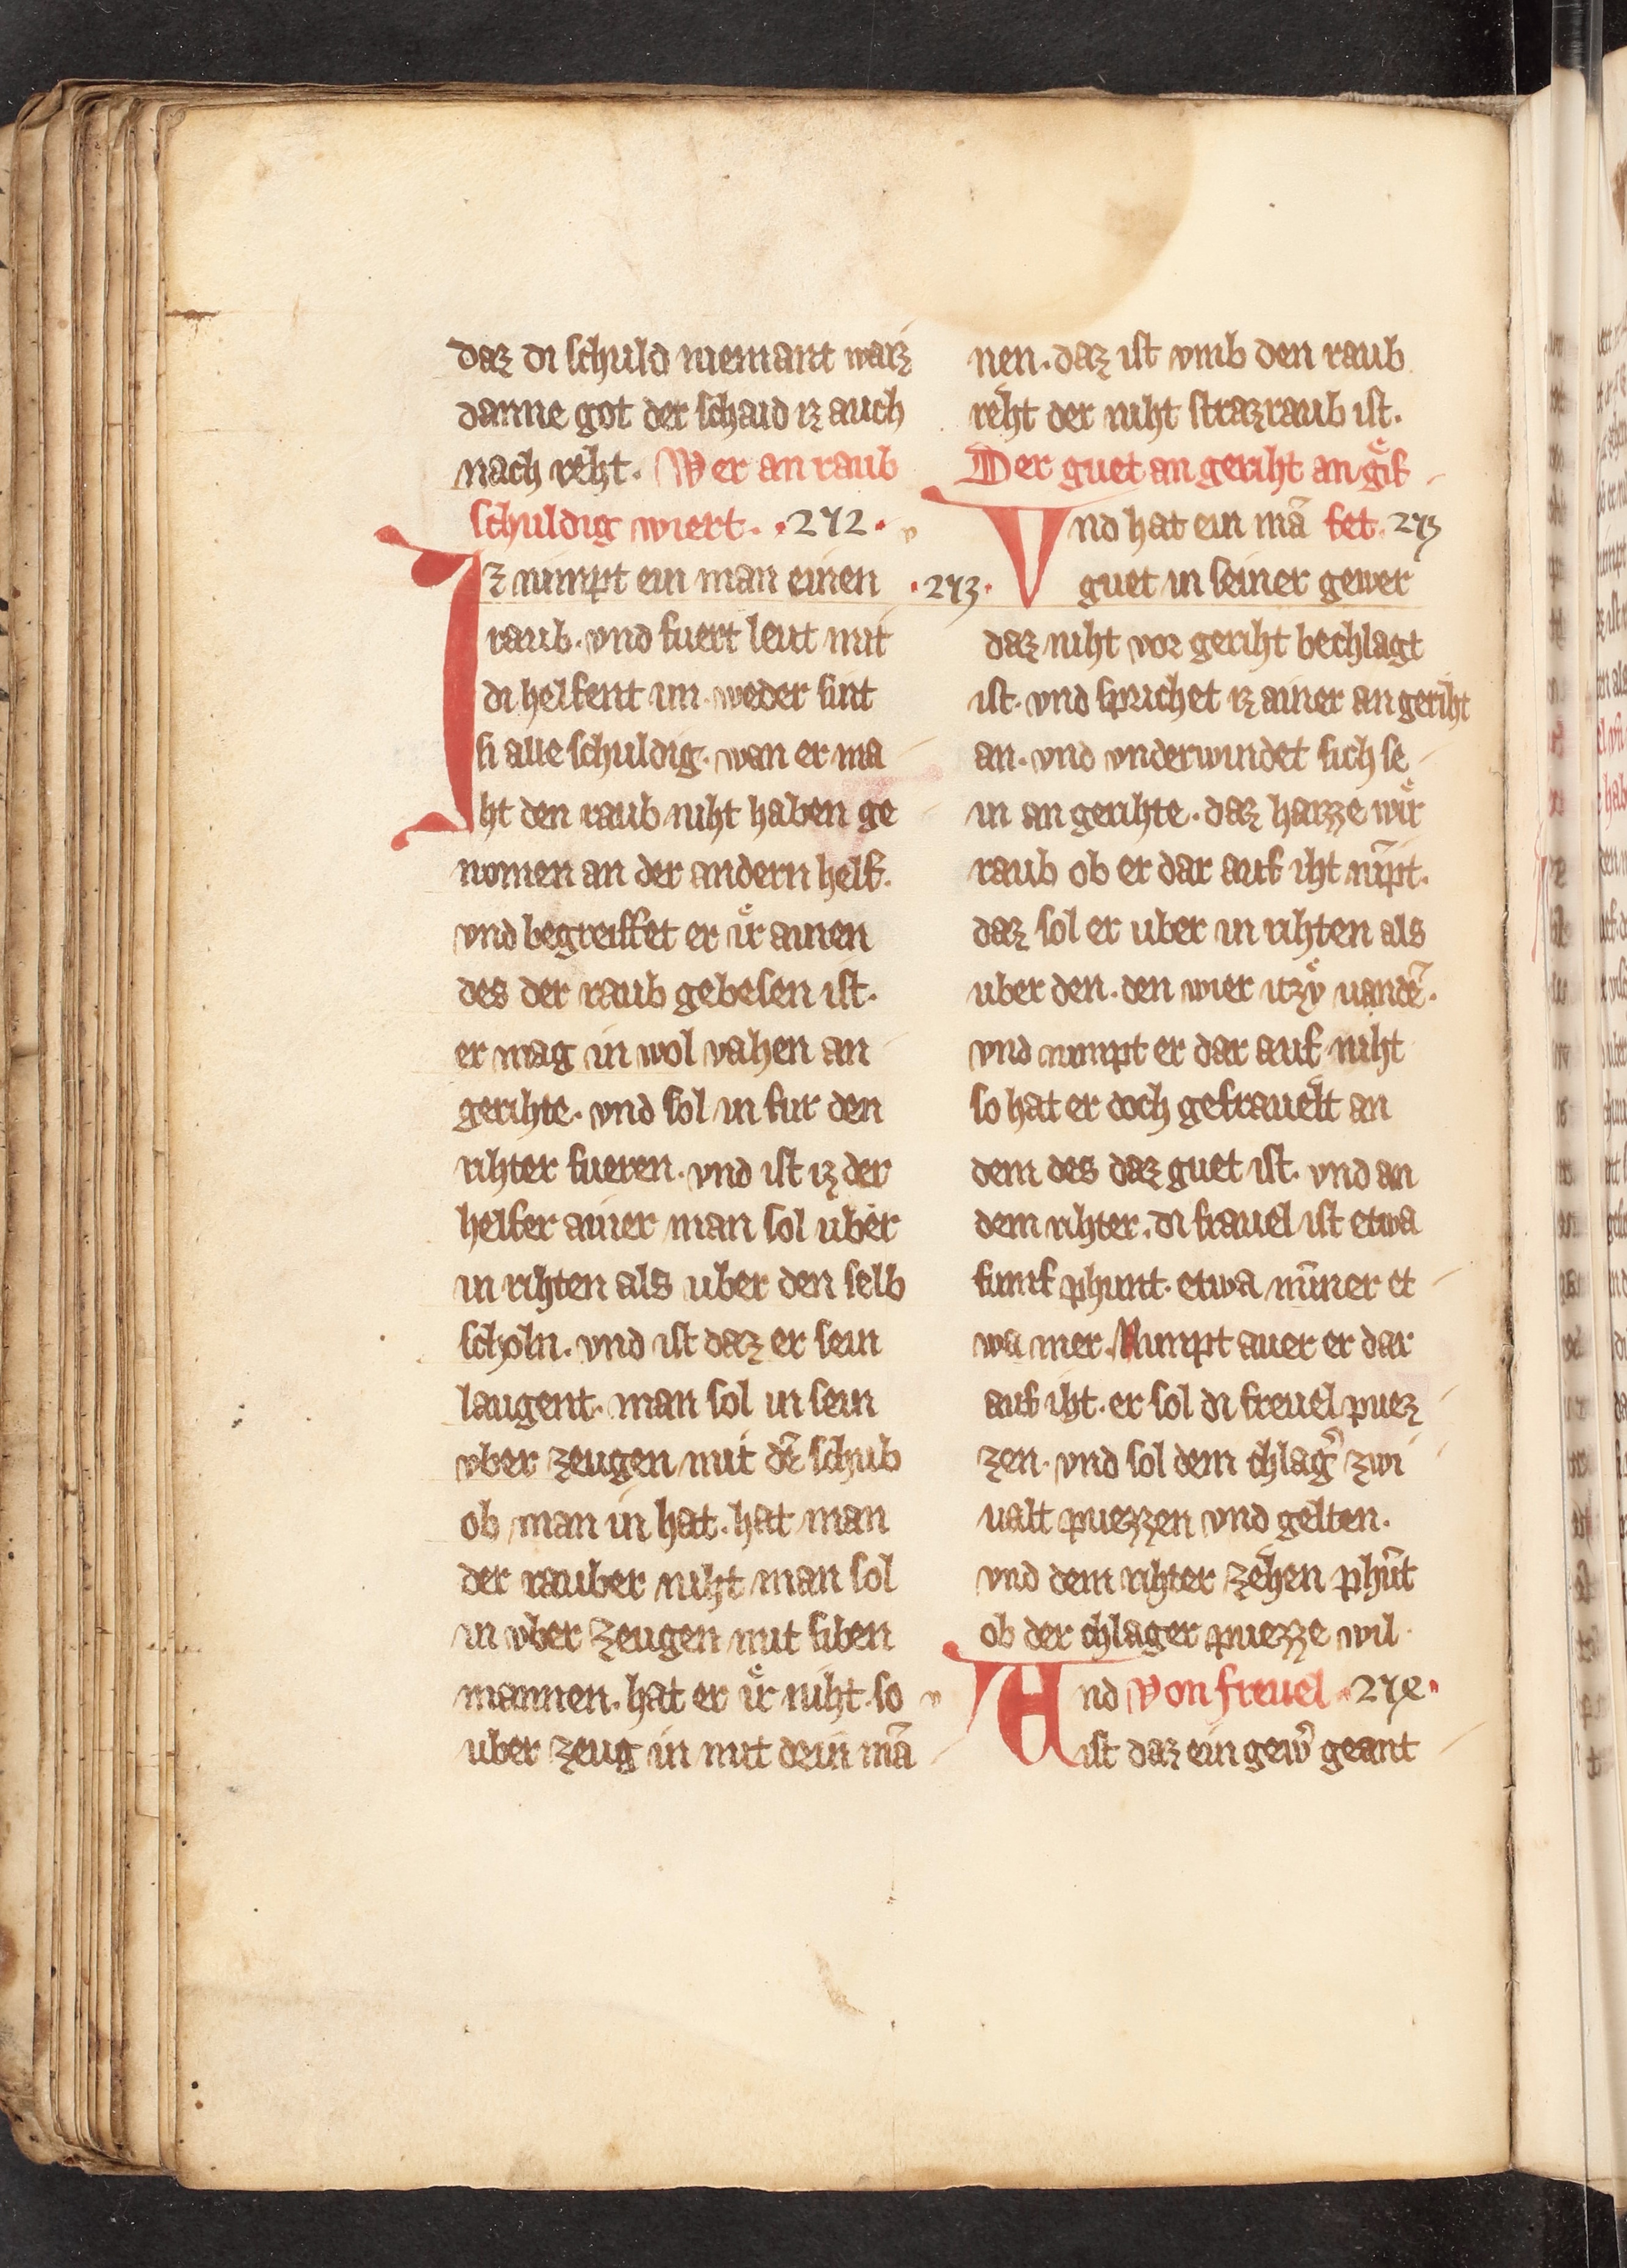 daz di schuld niemant waiz
danne got der schaid iz auch
nach reht. Wer an raub
schuldig wiert. ·272·
Iz nimpt ein man einen
raub. vnd fuert leut mit
di helfent im. weder sint
si alle schuldig. wan er ma
ht den raub niht haben ge
nomen an der andern helf.
vnd begreiffet er iͤr ainen
des der raub gebesen ist.
er mag in wol vahen an
gerihte. vnd sol in fur den
rihter fueren. vnd ist iz der
helfer ainer man sol uber
in rihten als uber den selb
scholn. vnd ist daz er sein
laugent. man sol in sein
vber zeugen mit dē schub
ob man in hat. hat man
der rauber niht man sol
in vber zeugen mit siben
mannen. hat er iͤr niht. so
uber zeug in mit dein mā
nen. daz ist vmb den raub
reht der niht strazraub ist.
Der guet an geriht an gͤif
·273· Vnd hat ein mā fet. 273
guet in seiner gewer
daz niht vor geriht bechlagt
ist. vnd sprichet iz ainer an geriht
an. vnd vnderwindet sich se
in an gerihte. daz haizze wiͤr
raub ob er dar auf iht nīpt.
daz sol er uber in rihten als
uber den. den wier itzv uandē.
vnd nimpt er dar auf niht
so hat er doch gefrauelt an
dem des daz guet ist. vnd an
dem rihter. di frauel ist etwa
fumf phunt. etwa mīner et
wa mer. Nimpt auer er dar
auf iht. er sol di freuel puez
zen. vnd sol dem chlag̾ zwi
ualt puezzen vnd gelten.
vnd dem rihter zehen phūt
ob der chlager puezze wil
Und Von freuel ·274·
ist daz ein gew̾ geant